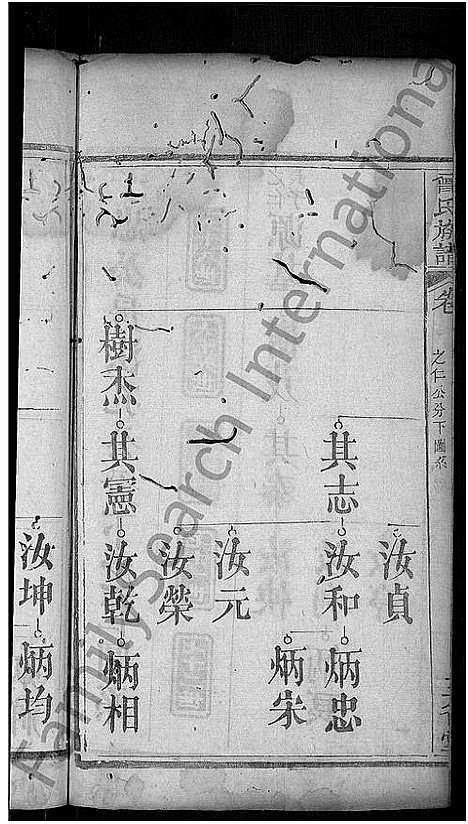 曾氏族譜
卷
之仁公分下圖系
汝貞
其志
汝和
炳忠
炳宋
汝元
汝榮
樹杰
其憲
汝乾
炳相
汝坤
炳均
FamilySearch International